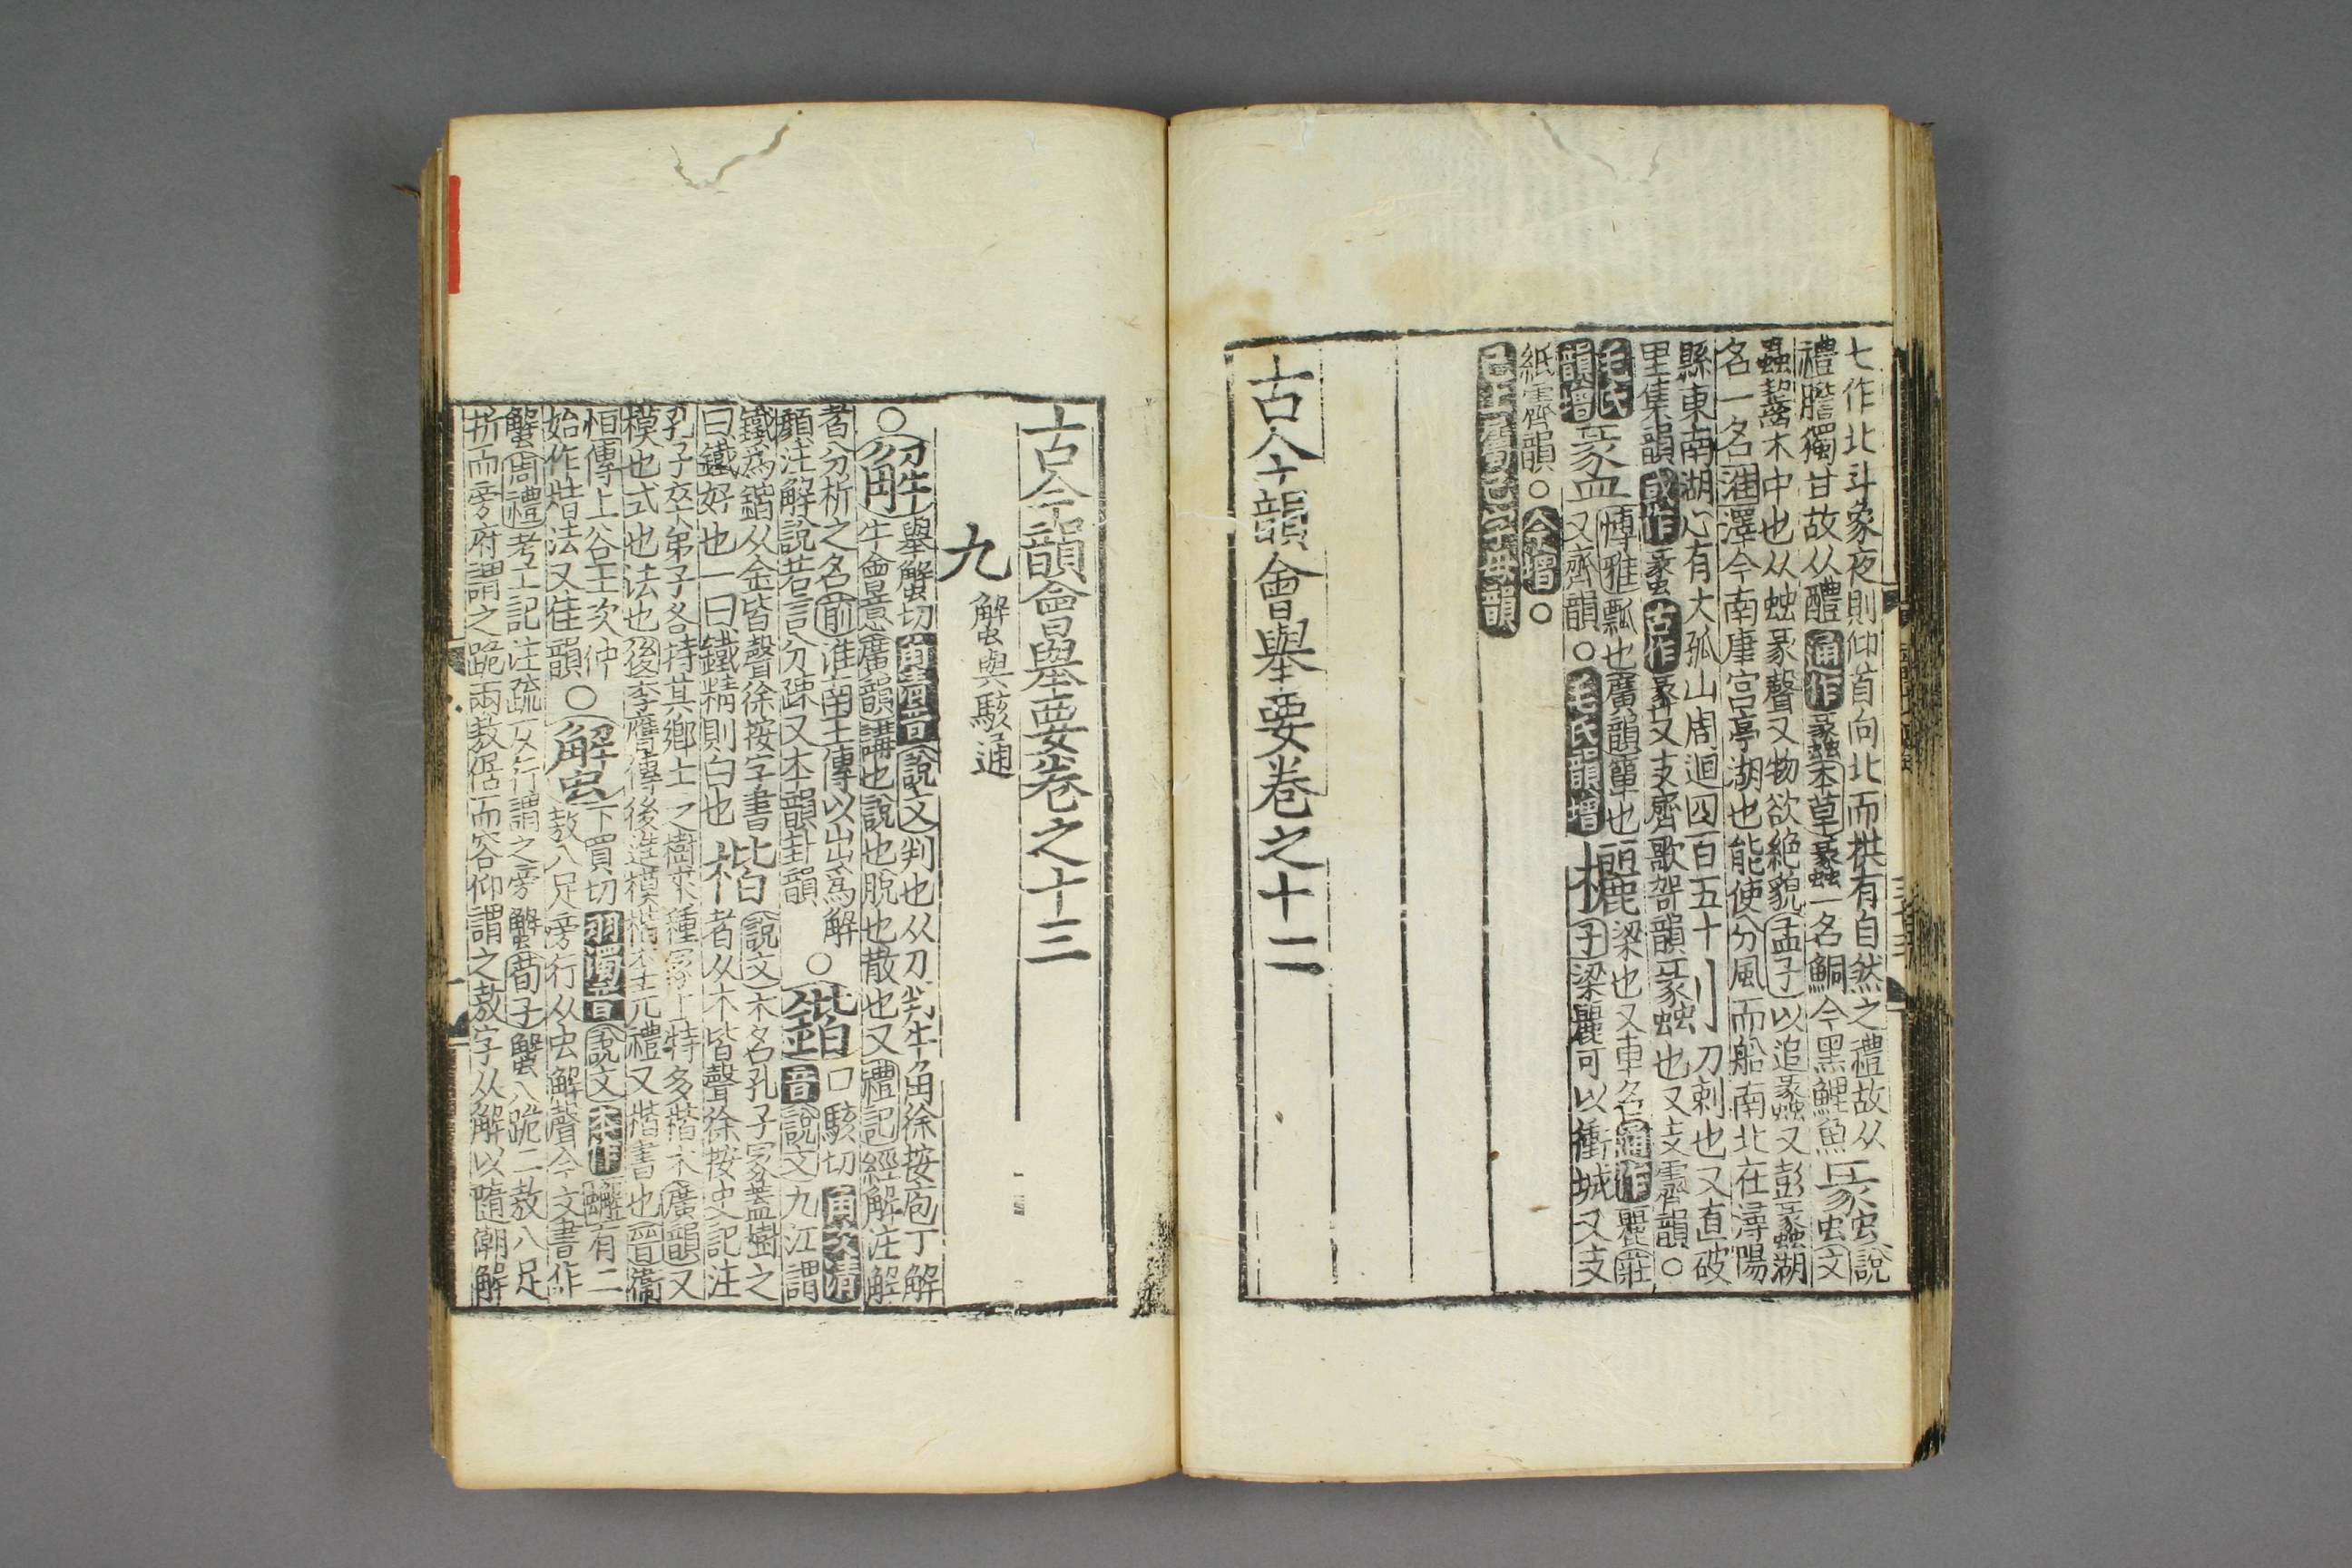 七作北斗象夜則仰首向北而拱有自然之禮故从蠡說
禮膽獨甘故从醴通作蠡本草蠡一名鮦今黑鯉魚文
蟲齧木中也从䖵彖聲又物欲絶貌孟子以追蠡又彭蠡湖
名一名滙澤今南康宮亭湖也能使分風而船南北在潯陽
縣東南湖心有大孤山周迴四百五十劙刀刺也又直破
里集韻或作蠡古作蠡又支齊歌哿韻蠡也又支霽韻○
毛氏盠博雅瓢也廣韻簞也欐梁也又車名通作麗莊
韻增又齊韻○毛氏韻增子梁麗可以衝城又支
紙霽韻○今增○
已上屬己字母韻
古今韻會舉要卷之十二
古今韻會舉要卷之十三
九 蟹與駭通
○解舉蟹切角清音說文判也从刀判牛角徐按庖丁解
牛會意廣韻講也說也脫也散也又禮記經解注解
者分析之名前淮南王傳以出爲解○鍇口駭切角次清
顔注解說若言分疎又本韻卦韻音說文九江謂
鐵爲鍇从金皆聲徐按字書楷說文木名孔子冡蓋樹之
曰鐵好也一曰鐵精則白也者从木皆聲徐按史記注
孔子卒弟子各持其鄉土之樹來種冡上特多楷木廣韻又
模也式也法也後李膺傳後進模楷禮又楷書也晉衞
恒傳上谷王次仲○蟹下買切羽濁音說文本作蠏有二
始作楷法又佳韻敖八足旁行从虫解聲今文書作
蟹周禮考工記注疏仄行謂之旁蟹荀子蟹八跪二敖八足
折而旁府謂之跪兩敖倨而容仰謂之敖字从解以隨潮解